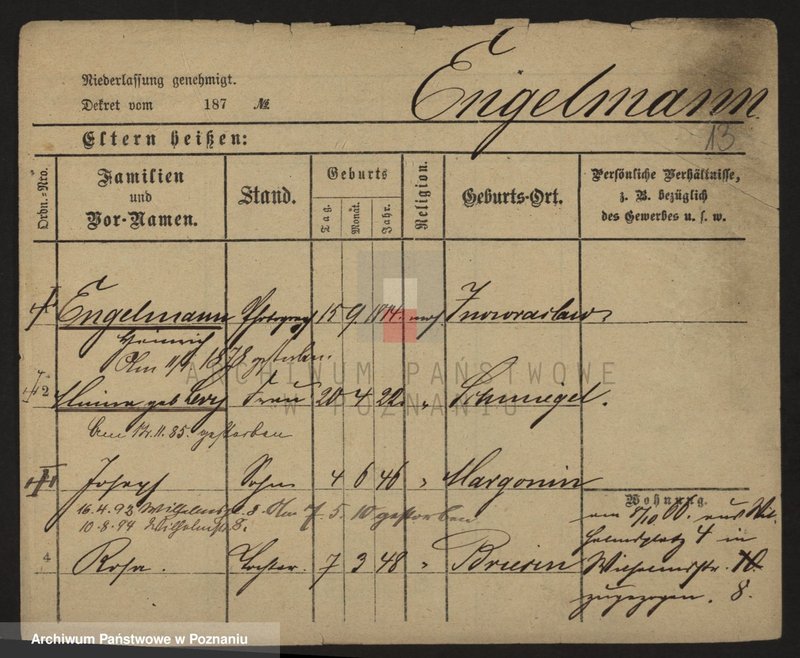 Niederlassung genehmigt.
Dekret vom 187 №
Engelmann
13
Eltern heißen:
Ordn.-Nro.
Familien und Vor-Namen.
Stand.
Geburts
Tag.
Monat.
Jahr.
Religion.
Geburts-Ort.
Persönliche Verhältnisse, z. B. bezüglich des Gewerbes u. s. w.
1 Engelmann Photograph 15 9 1814 mos Inowraclaw
Heinrich
Am 1878 gestorben.
2 geb Levy Frau 20 4 22 " Schmiegel.
Am 11.85. gestorben
Joseph Sohn 4 6 46 " Margonin
16.4.92 Wilhelmstr. 8. Am 7. 5. 10 gestorben
10.8.94 Wilhelmstr. 8.
4 Rosa. Tochter. 7 3 48 " Briesen
Wohnung.
am 5/10 00. aus Wil-
helmsplatz 4 in
Wilhelmstr. 10.
zugezogen. 8.
ARCHIWUM PAŃSTWOWE
W POZNANIU
Archiwum Państwowe w Poznaniu